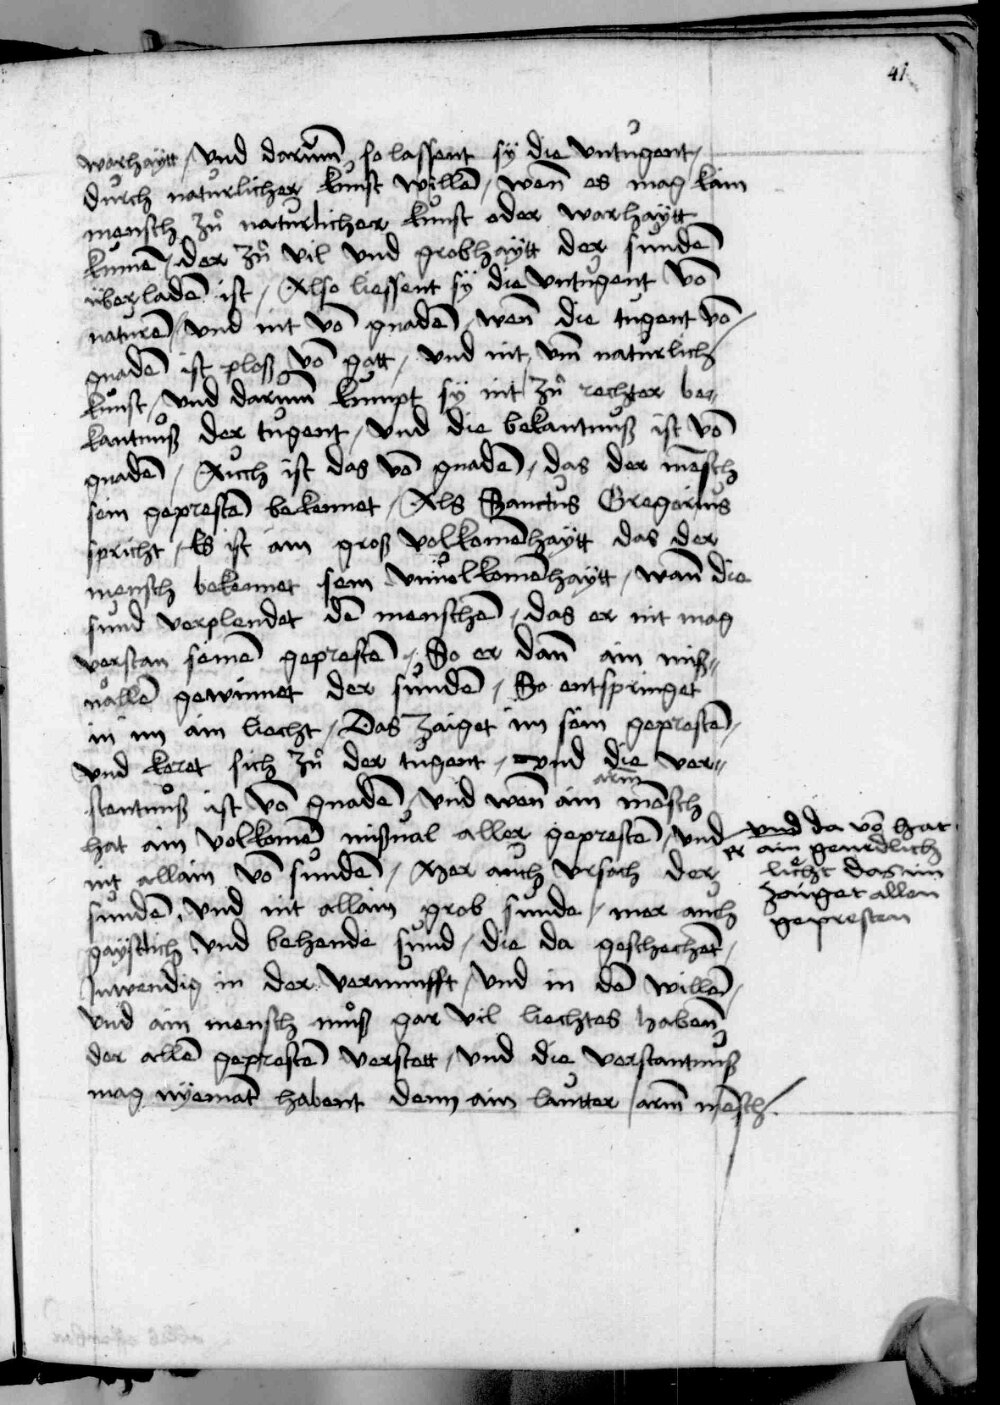 41
warhaÿtt / vnd darum̄ so lassent sÿ die vntugent /
durch naturlicher kunst willē / wen̄ es mag kain
mensch zů naturlicher kunst oder warhaÿtt
kumē / der zů vil vnd grobhaÿtt der sundē
überladē ist / Also liessent sÿ die vntugent vō
naturē / vnd nit vō gnadē / wen̄ die tugent vō /
gnadē ist ploß vō gott / vnd nit vm̄ naturlich
kunst / vnd darum̄ kumpt sÿ nit zů rechter be„
kantnůß der tugent / vnd die bekantnůß ist vō
gnadē / Auch ist das vō gnadē / das der mēsch
sein geprestē bekennet / Als Sanctus Gregorius
spricht / Es ist ain groß volkomēhaÿtt das der
mensch bekennet sein vnuolkomēhaÿtt / wan̄ die
sund verplendet dē menschē / das er nit mag
verstan seinē geprestē / So er dan̄ ain miß„
uallē gewinnet der sundē / So entspringet
in im ain liecht / Das zaiget im sein geprestē /
vnd keret sich zů der tugent / vnd die ver„
stentnůß ist vō gnadē / vnd wen̄ ain arm mēsch
hat ain volkomē missual aller geprestē / vnd
nit allain vō sundē / Mer auch vrsach der
sundē / vnd nit allain grob sunde / mer auch
gaÿstlich vnd behende sund / die da geschechēt /
Inwendig in der vernunfft / vnd in dē willē /
vnd ain mensch můß gar vil liechtes haben̄
der allē geprestē verstett / vnd die verstantnuß
mag nÿemāt habent denn ain lautter arm̄ mēsch /
vnd da vō hat
er ain
liecht das im
zaiget allen
gepresten